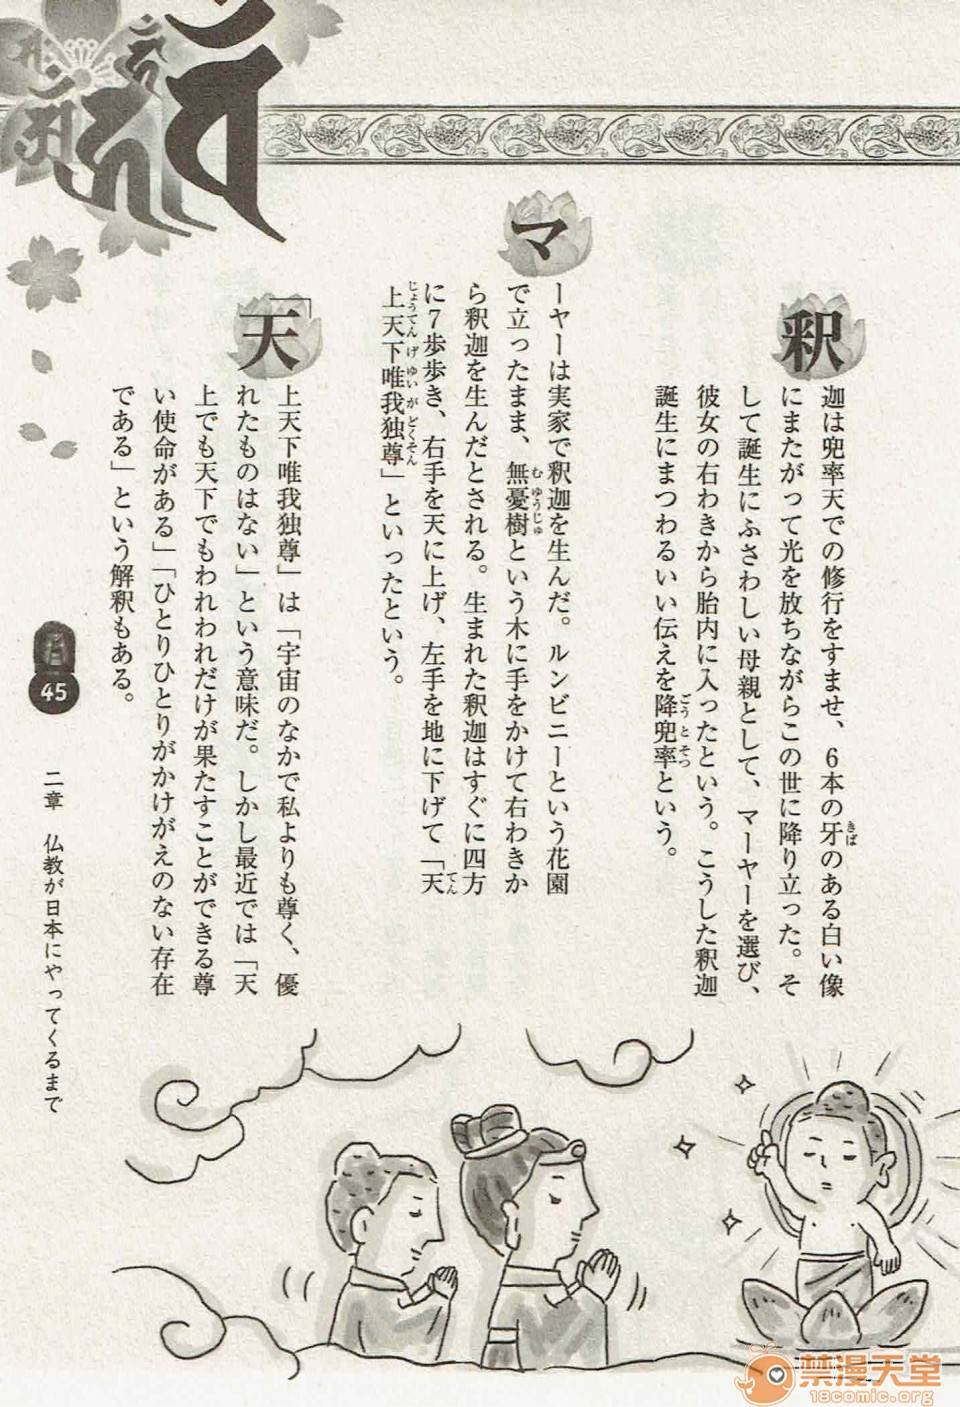 釈
迦は兜率天での修行をすませ、6本の牙のある白い像
にまたがって光を放ちながらこの世に降り立った。そ
して誕生にふさわしい母親として、マーヤーを選び、
彼女の右わきから胎内に入ったという。こうした釈迦
誕生にまつわるいい伝えを降兜率という。
きば
ごうとそつ
マ
ーヤーは実家で釈迦を生んだ。ルンビニーという花園
で立ったまま、無憂樹という木に手をかけて右わきか
ら釈迦を生んだとされる。生まれた釈迦はすぐに四方
に7歩歩き、右手を天に上げ、左手を地に下げて「天
上天下唯我独尊」といったという。
むゆうじゅ
てん
じょうてんげゆいがどくそん
「天
上天下唯我独尊」は「宇宙のなかで私よりも尊く、優
れたものはない」という意味だ。しかし最近では「天
上でも天下でもわれわれだけが果たすことができる尊
い使命がある」「ひとりひとりがかけがえのない存在
である」という解釈もある。
45
二章 仏教が日本にやってくるまで
禁漫天堂
18comic.org